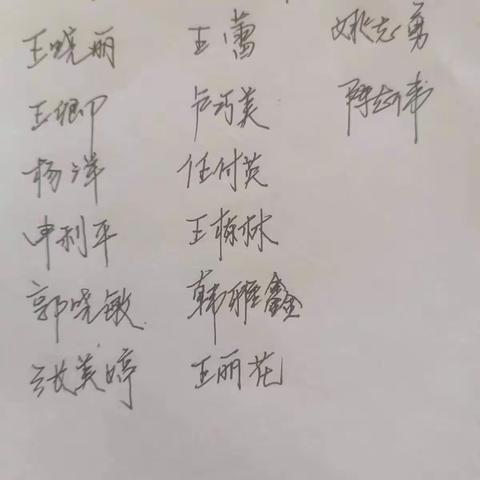 王晓丽 王蕾 姚志勇
王卿 卢巧美 陈志伟
杨洋 任付英
申利平 王栋林
郭晓敏 韩雅鑫
张美婷 王丽花